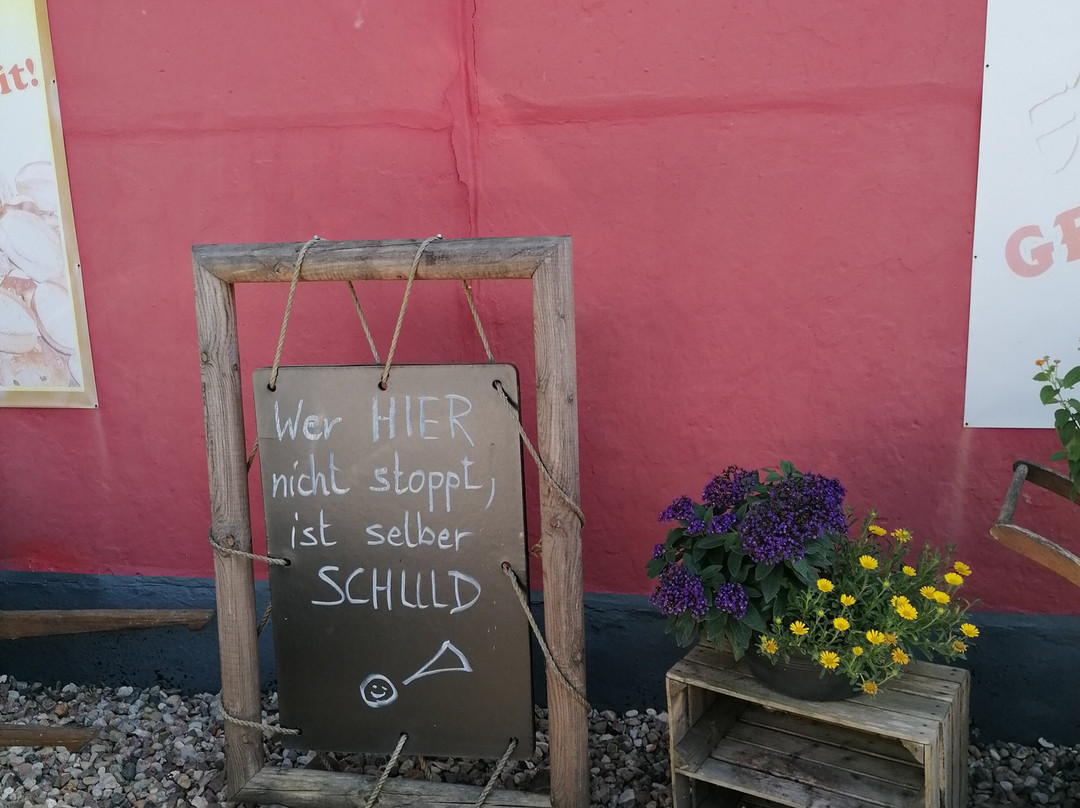 it!
Wer HIER
nicht stoppt,
ist selber
SCHULD
GE